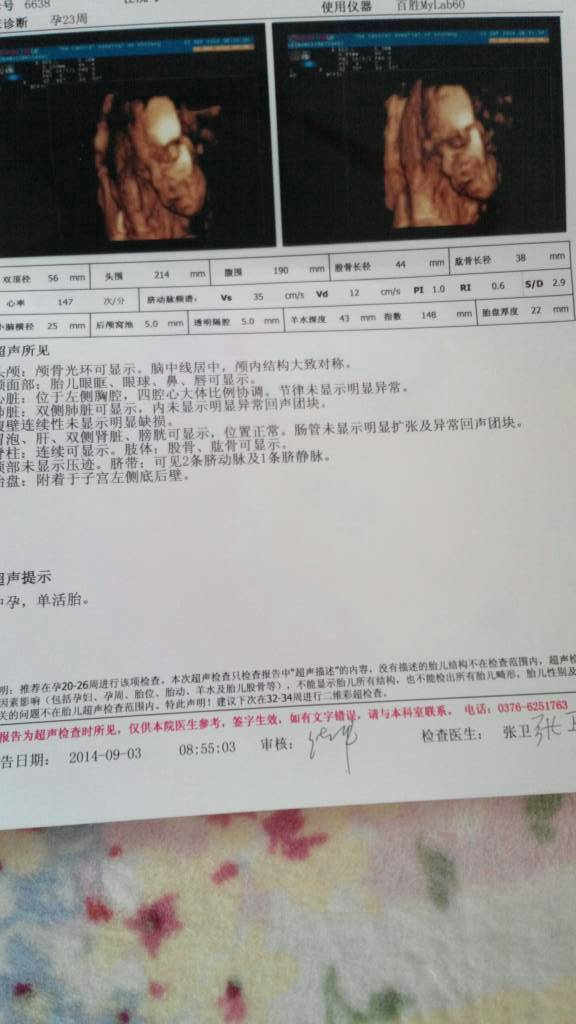 号 6638
使用仪器 百胜MyLab60
诊断 孕23周
双顶径 56 mm 头围 214 mm 腹围 190 mm 股骨长径 44 mm 肱骨长径 38 mm
心率 147 次/分 脐动脉频谱: Vs 35 cm/s Vd 12 cm/s PI 1.0 RI 0.6 S/D 2.9
小脑横径 25 mm 后颅窝池 5.0 mm 透明隔腔 5.0 mm 羊水深度 43 mm 指数 148 mm 胎盘厚度 22 mm
超声所见
头颅: 颅骨光环可显示。脑中线居中，颅内结构大致对称。
颜面部: 胎儿眼眶、眼球、鼻、唇可显示。
心脏: 位于左侧胸腔，四腔心大体比例协调。节律未显示明显异常。
肺脏: 双侧肺脏可显示，内未显示明显异常回声团块。
腹壁连续性未显示明显缺损。
胃泡、肝、双侧肾脏、膀胱可显示，位置正常。肠管未显示明显扩张及异常回声团块。
脊柱: 连续可显示。肢体: 股骨、肱骨可显示。
颈部未显示压迹。脐带: 可见2条脐动脉及1条脐静脉。
胎盘: 附着于子宫左侧底后壁。
超声提示
中孕，单活胎。
明: 推荐在孕20-26周进行该项检查。本次超声检查只检查报告中“超声描述”的内容，没有描述的胎儿结构不在检查范围内，超声检
因素影响（包括孕妇、孕周、胎位、胎动、羊水及胎儿股骨等），不能显示胎儿所有结构，也不能检出所有胎儿畸形，胎儿性别及
关的问题不在胎儿超声检查范围内。特此声明！建议下次在32-34周进行二维彩超检查。
报告为超声检查时所见，仅供本院医生参考，签字生效，如有文字错误，请与本科室联系。 电话: 0376-6251763
告日期: 2014-09-03 08:55:03 审核: 检查医生: 张卫